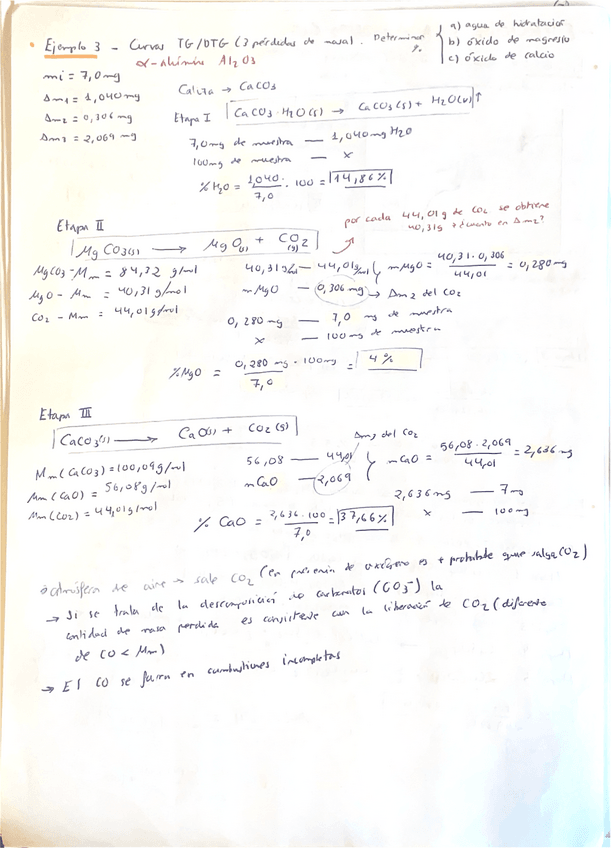 • Ejemplo 3 - Curvas TG/DTG (3 pérdidas de masa). Determinar %
a) agua de hidratación
b) óxido de magnesio
c) óxido de calcio
α-alúmina Al2O3
mi = 7,0 mg
Δm1 = 1,040 mg
Δm2 = 0,306 mg
Δm3 = 2,069 mg
Calcita → CaCO3
Etapa I CaCO3·H2O(s) → CaCO3(s) + H2O(v)↑
7,0 mg de muestra — 1,040 mg H2O
100 mg de muestra — x
% H2O = 1,040 / 7,0 · 100 = 14,86%
Etapa II
MgCO3(s) → MgO(s) + CO2(g)
por cada 44,01 g de CO2 se obtiene
40,31g
en Δm2?
MgCO3 - Mm = 84,32 g/mol
MgO - Mm = 40,31 g/mol
CO2 - Mm = 44,01 g/mol
40,31 g/mol — 44,01 g/mol
mMgO — 0,306 mg → Δm2 del CO2
mMgO = 40,31 · 0,306 / 44,01 = 0,280 mg
0,280 mg — 7,0 mg de muestra
x — 100 mg de muestra
% MgO = 0,280 mg · 100 mg / 7,0 = 4 %
Etapa III
CaCO3(s) → CaO(s) + CO2(g)
Δm3 del CO2
Mm (CaCO3) = 100,09 g/mol
Mm (CaO) = 56,08 g/mol
Mm (CO2) = 44,01 g/mol
56,08 — 44,01
mCaO — 2,069
mCaO = 56,08 · 2,069 / 44,01 = 2,636 mg
2,636 mg — 7 mg
x — 100 mg
% CaO = 2,636 · 100 / 7,0 = 37,66%
atmósfera de aire → sale CO2 (en presencia de oxígeno es + probable que salga CO2)
→ Si se trata de la descomposición de carbonatos (CO3-) la
cantidad de masa perdida es consistente con la liberación de CO2 (diferente
de CO < Mm)
→ El CO se forma en combustiones incompletas